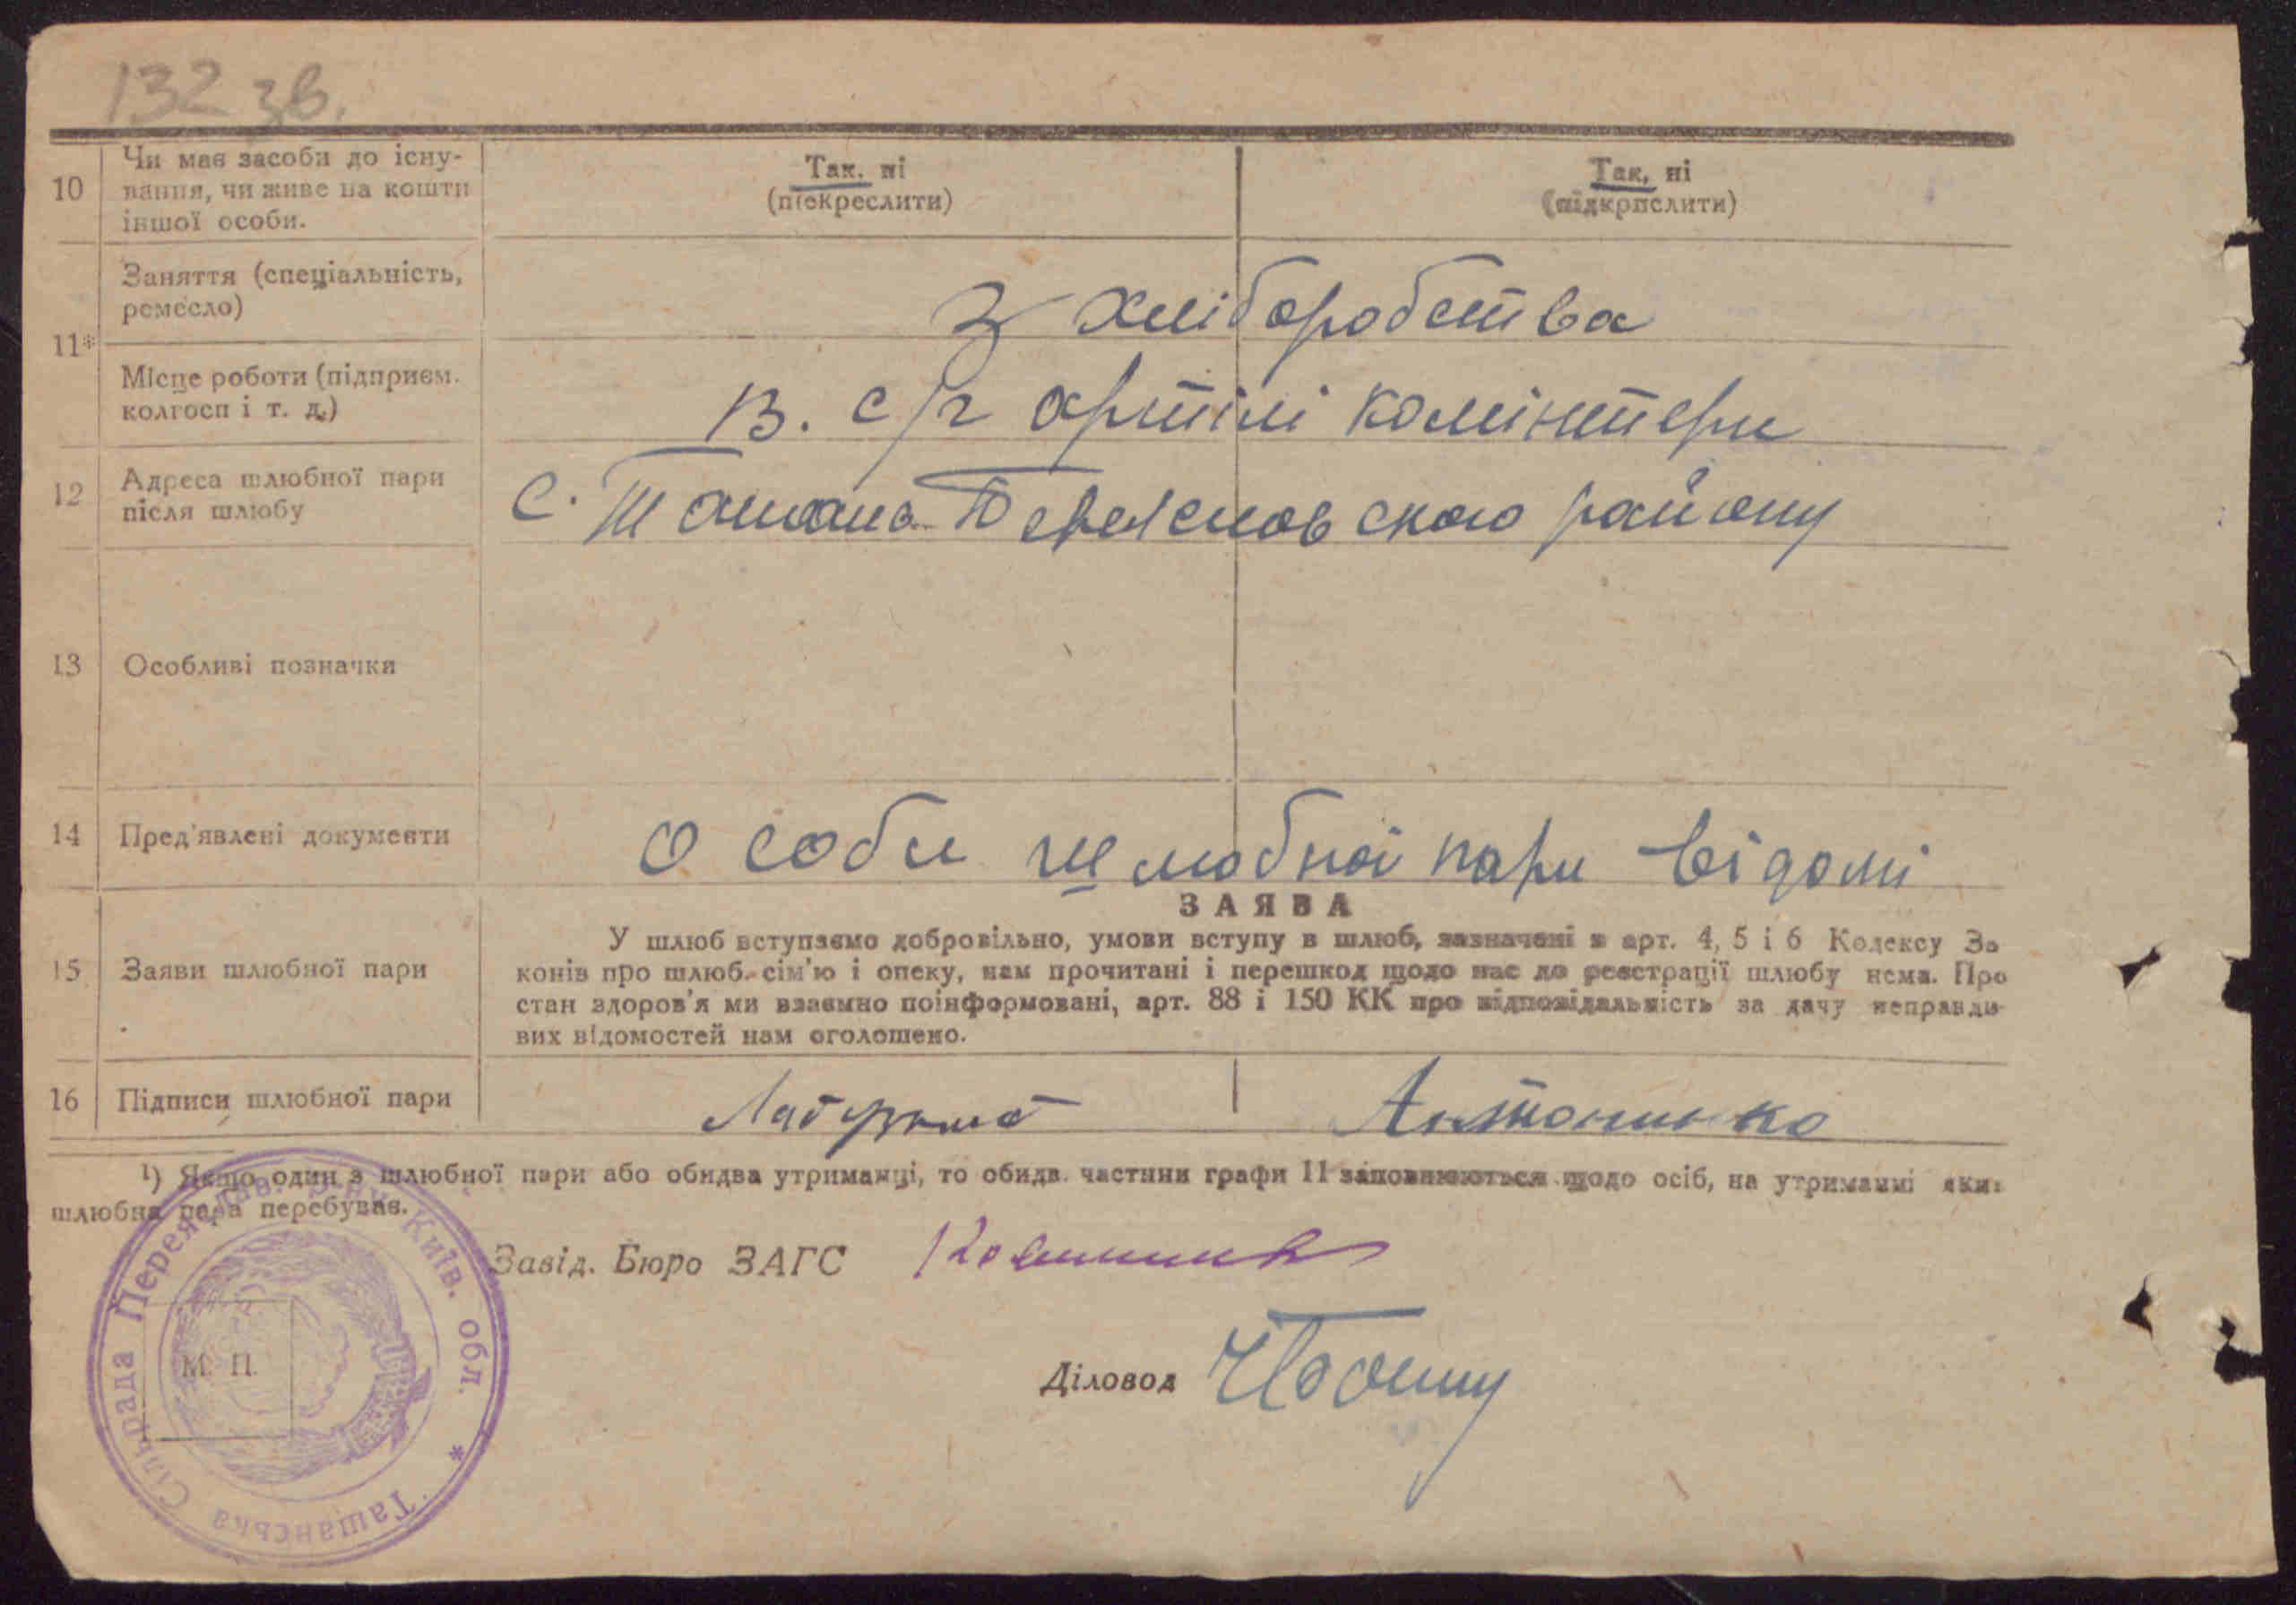 132 зв.
10
Чи має засоби до існу-
вання, чи живе на кошти
іншої особи.
Так, ні
(підкреслити)
Так, ні
(підкрпслити)
11*
Заняття (спеціальність,
ремесло)
З хліборобства
Місце роботи (підприєм.
колгосп і т. д.)
В. с/г артілі комінтерн
12
Адреса шлюбної пари
після шлюбу
С. Ташань Переяславского району
13
Особливі позначки
14
Пред'явлені документи
Особи шлюбної пари відомі
ЗАЯВА
15
Заяви шлюбної пари
У шлюб вступаємо добровільно, умови вступу в шлюб, зазначені в арт. 4, 5 і 6 Кодексу За
конів про шлюб. сім'ю і опеку, нам прочитані і перешкод щодо нас до реєстрації шлюбу нема. Про
стан здоров'я ми взаємно поінформовані, арт. 88 і 150 КК про відповідальність за дачу неправди-
вих відомостей нам оголошено.
16
Підписи шлюбної пари
Антоненко
¹) Якщо один з шлюбної пари або обидва утриманці, то обидв. частини графи 11 заповнюються щодо осіб, на утриманні яки
шлюбна пара перебуває.
Завід. Бюро ЗАГС
Діловод
М. П.
Ташанська Сільрада Переяслав. р-ну Київ. обл. *